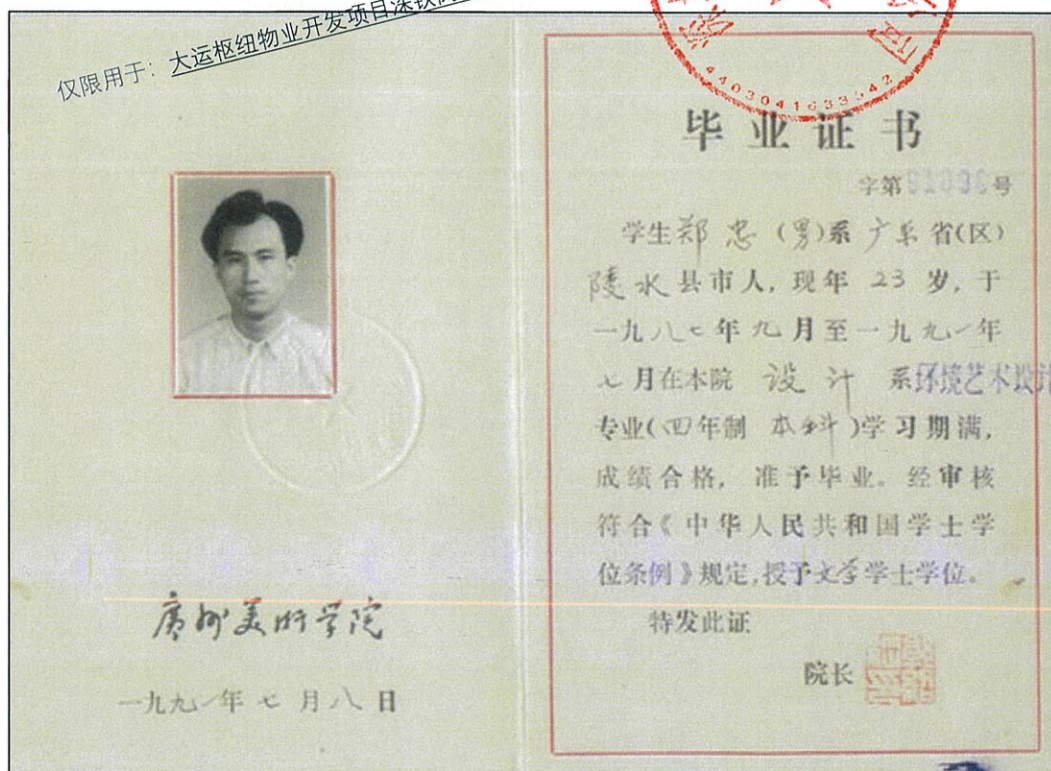 仅限用于：大运枢纽物业开发项目深铁
4403041633542
毕业证书
字第 号
学生郑忠（男）系广东省（区）
陵水县市人，现年 23 岁，于
一九八七年九月至一九九一年
七月在本院 设计 系环境艺术设计
专业（四年制 本科）学习期满，
成绩合格，准予毕业。经审核
符合《中华人民共和国学士学
位条例》规定，授予文学学士学位。
特发此证
院长
广州美术学院
一九九一年七月八日